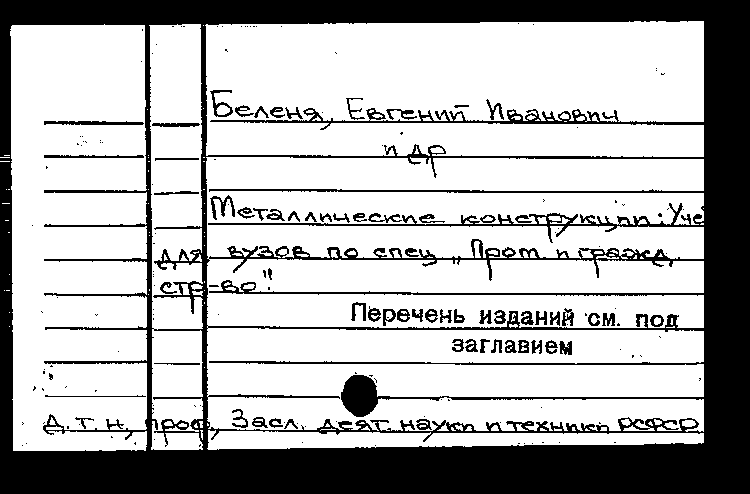 Беленя, Евгений Иванович
и др
Металлические конструкции: Уче
для вузов по спец „Пром. и гражд.
стр-во".
Перечень изданий см. под
заглавием
Д. т. н, проф, Засл. деят. науки и техники РСФСР